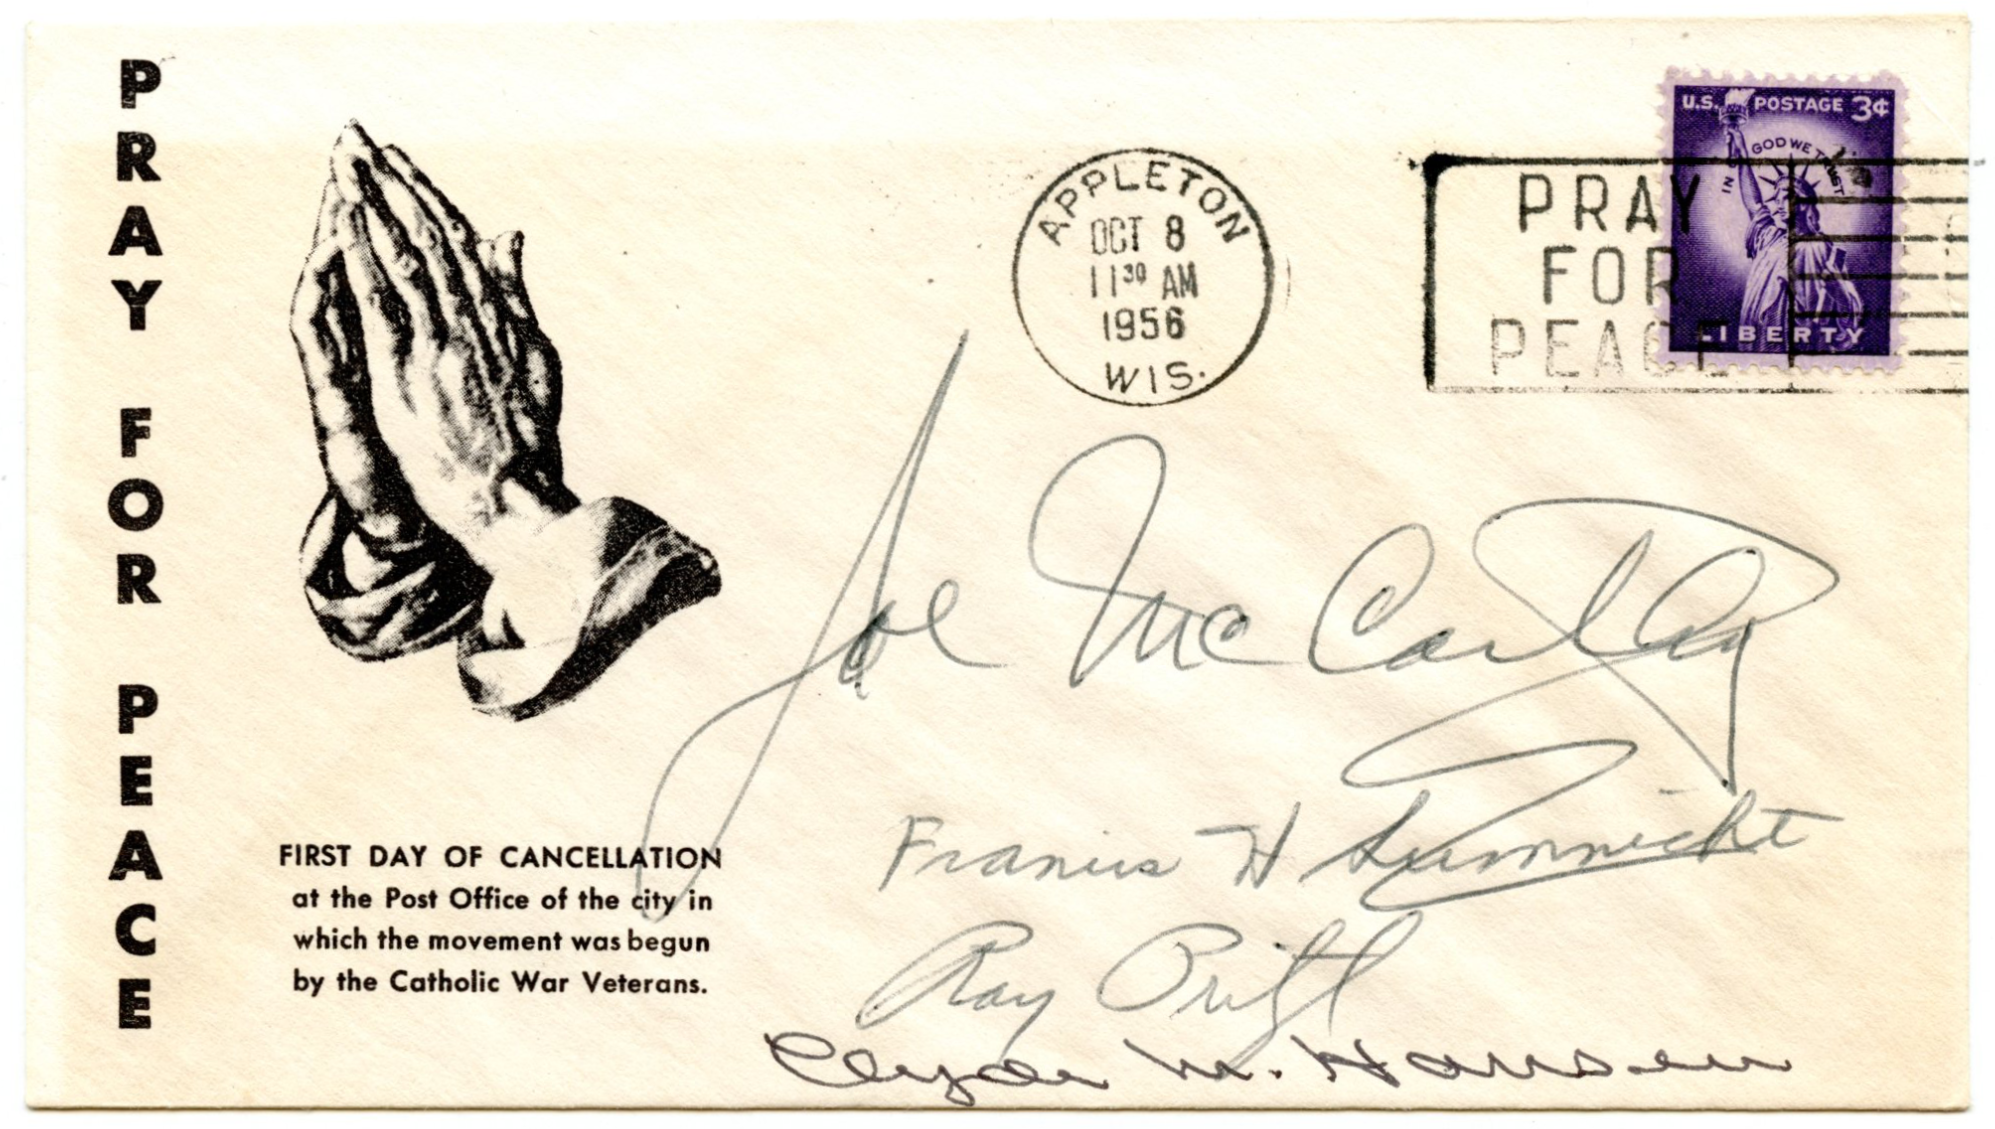 PRAY FOR PEACE
FIRST DAY OF CANCELLATION
at the Post Office of the city in
which the movement was begun
by the Catholic War Veterans.
APPLETON
OCT 8
11 30 AM
1956
WIS.
PRAY
FOR
PEACE
U.S. POSTAGE 3¢
IN GOD WE TRUST
LIBERTY
Joe McCarthy
Francis H
Ray
Clyde M. Hansen